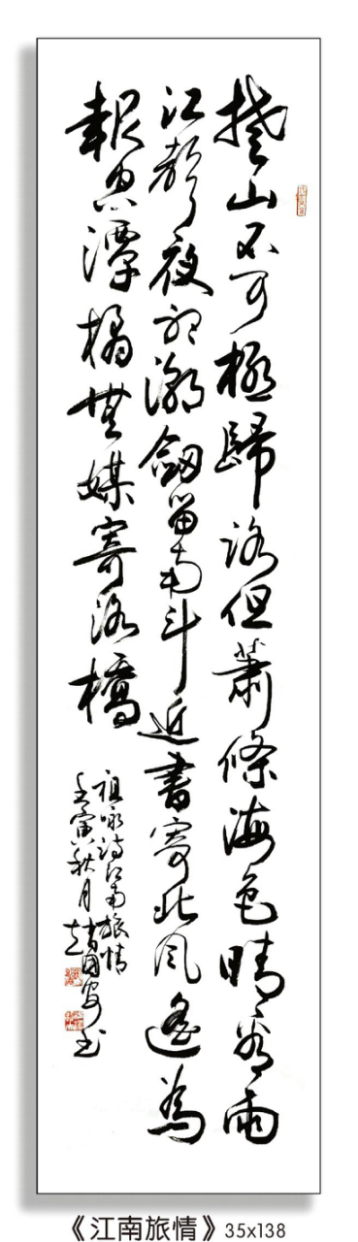 楚山不可極歸路但蕭條海色晴看雨
江聲夜聽潮劍留南斗近書寄北風遙為
報空潭橘無媒寄洛橋
祖咏詩江南旅情
壬寅秋月趙國安书
《江南旅情》35x138